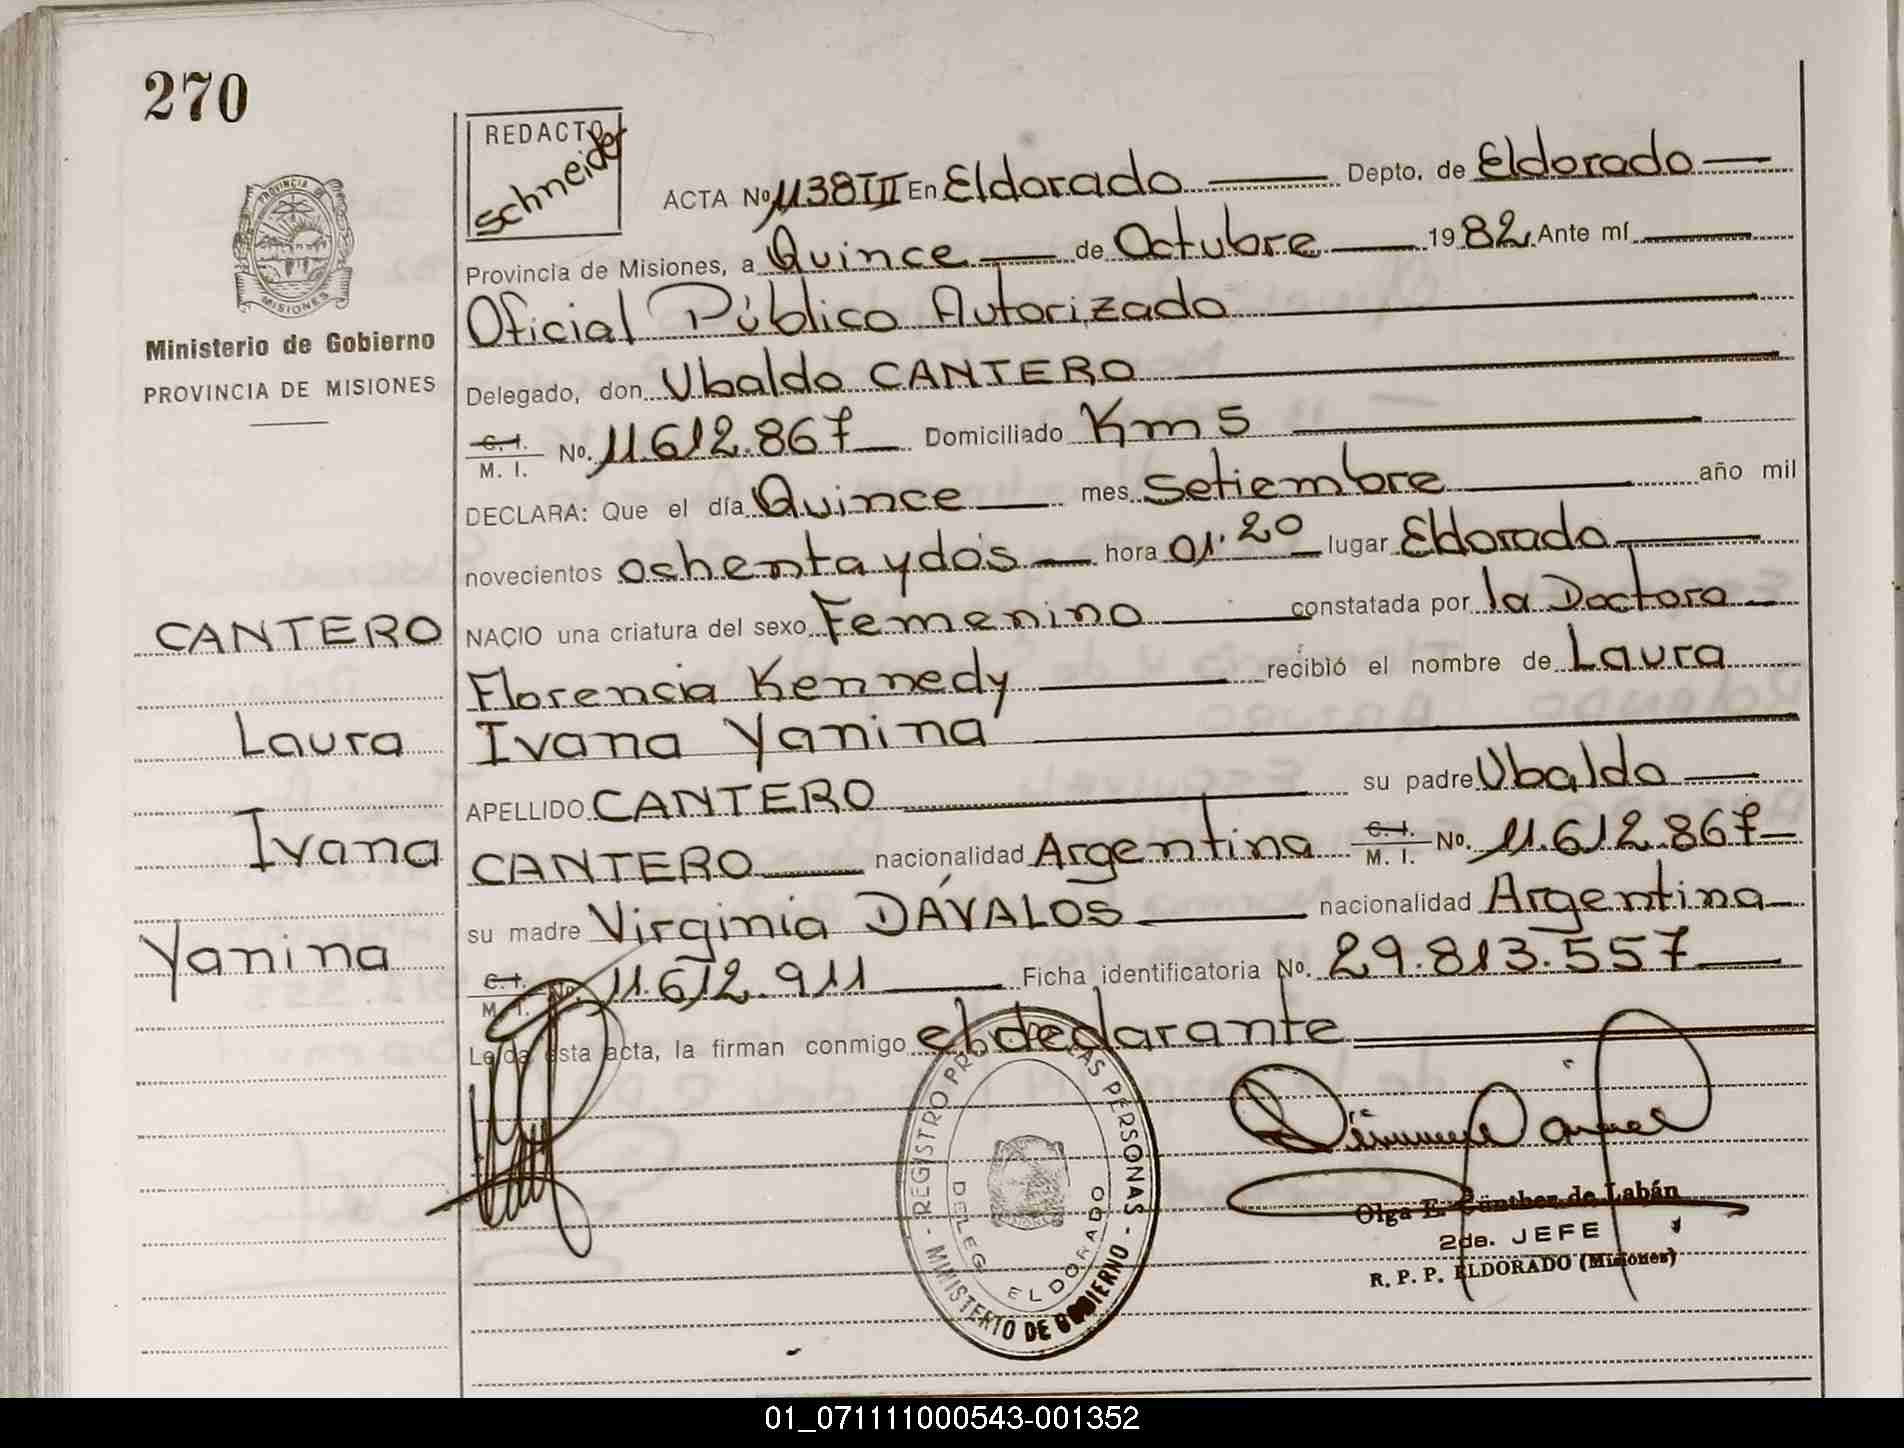 270
REDACTO
Schneider
PROVINCIA DE
MISIONES
Ministerio de Gobierno
PROVINCIA DE MISIONES
ACTA No 1138 T II En Eldorado Depto. de Eldorado
Provincia de Misiones, a Quince de Octubre 1982 Ante mí
Oficial Público Autorizado
Delegado, don Ubaldo CANTERO
C. I.
M. I. No. 11.612.867 Domiciliado Km 5
DECLARA: Que el día Quince mes Setiembre año mil
novecientos ochenta y dos hora 01:20 lugar Eldorado
NACIO una criatura del sexo Femenino constatada por la Doctora
Florencia Kennedy recibió el nombre de Laura
Ivana Yanina
APELLIDO CANTERO su padre Ubaldo
CANTERO nacionalidad Argentina C. I. M. I. No. 11.612.867
su madre Virginia DÁVALOS nacionalidad Argentina
C. I. M. I. No. 11.612.911 Ficha identificatoria No. 29.813.557
Leída esta acta, la firman conmigo el declarante
CANTERO
Laura
Ivana
Yanina
REGISTRO PR LAS PERSONAS - MINISTERIO DE GOBIERNO -
DELEG ELDORADO
Olga E. Günther de Labán
2da. JEFE
R. P. P. ELDORADO (Misiones)
01_071111000543-001352